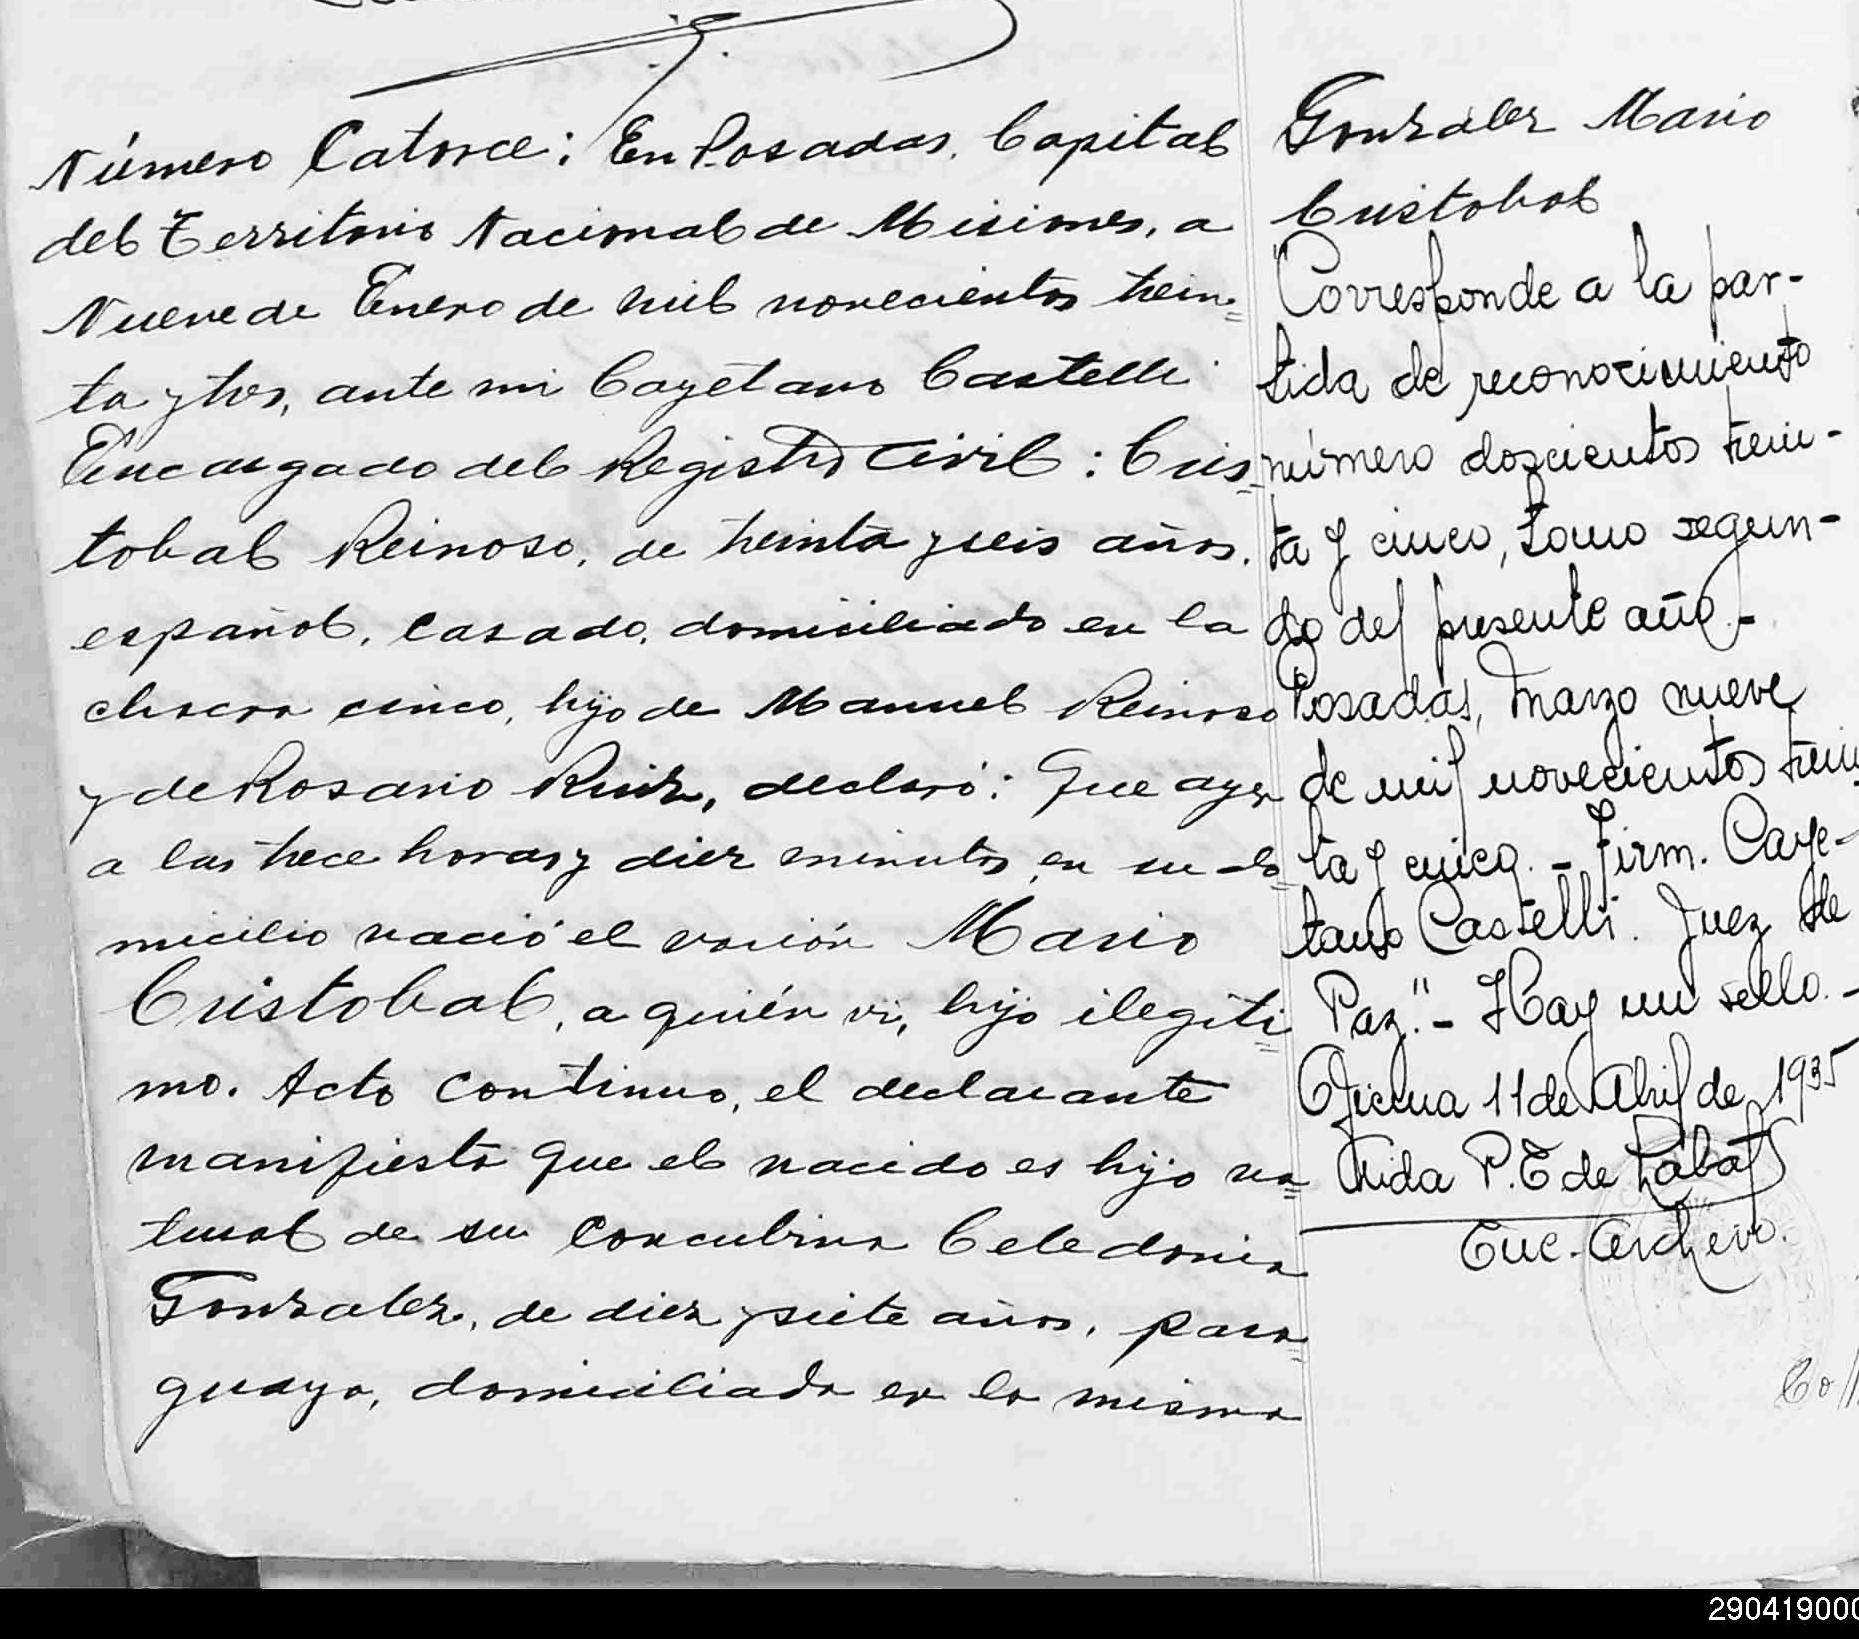 Número Catorce: En Posadas, Capital
del Territorio Nacional de Misiones, a
Nueve de Enero de mil novecientos trein=
ta y tres, ante mi Cayetano Castelli
Encargado del Registro Civil: Cris=
tobal Reinoso, de treinta y seis años,
español, casado, domiciliado en la
chacra cinco, hijo de Manuel Reinoso
y de Rosario Ruiz, declaró: Que ayer
a las trece horas y diez minutos, en su do=
micilio nació el varón Mario
Cristobal, a quién vi, hijo ilegiti=
mo. Acto continuo, el declarante
manifiesta que el nacido es hijo na=
tural de su concubina Celedonia
Gonzalez, de diez y siete años, para=
guaya, domiciliada en la misma
Gonzalez Mario
Cristobal
"Corresponde a la par-
tida de reconocimiento
número doscientos trein-
ta y cinco, tomo segun-
do del presente año.-
Posadas, Marzo nueve
de mil novecientos trein
ta y cinco.- Firm. Caye-
tano Castelli. Juez de
Paz".- Hay un sello.-
Oficina 11 de Abril de 1935
P. E de Labat
Enc. Archivo.
290419000